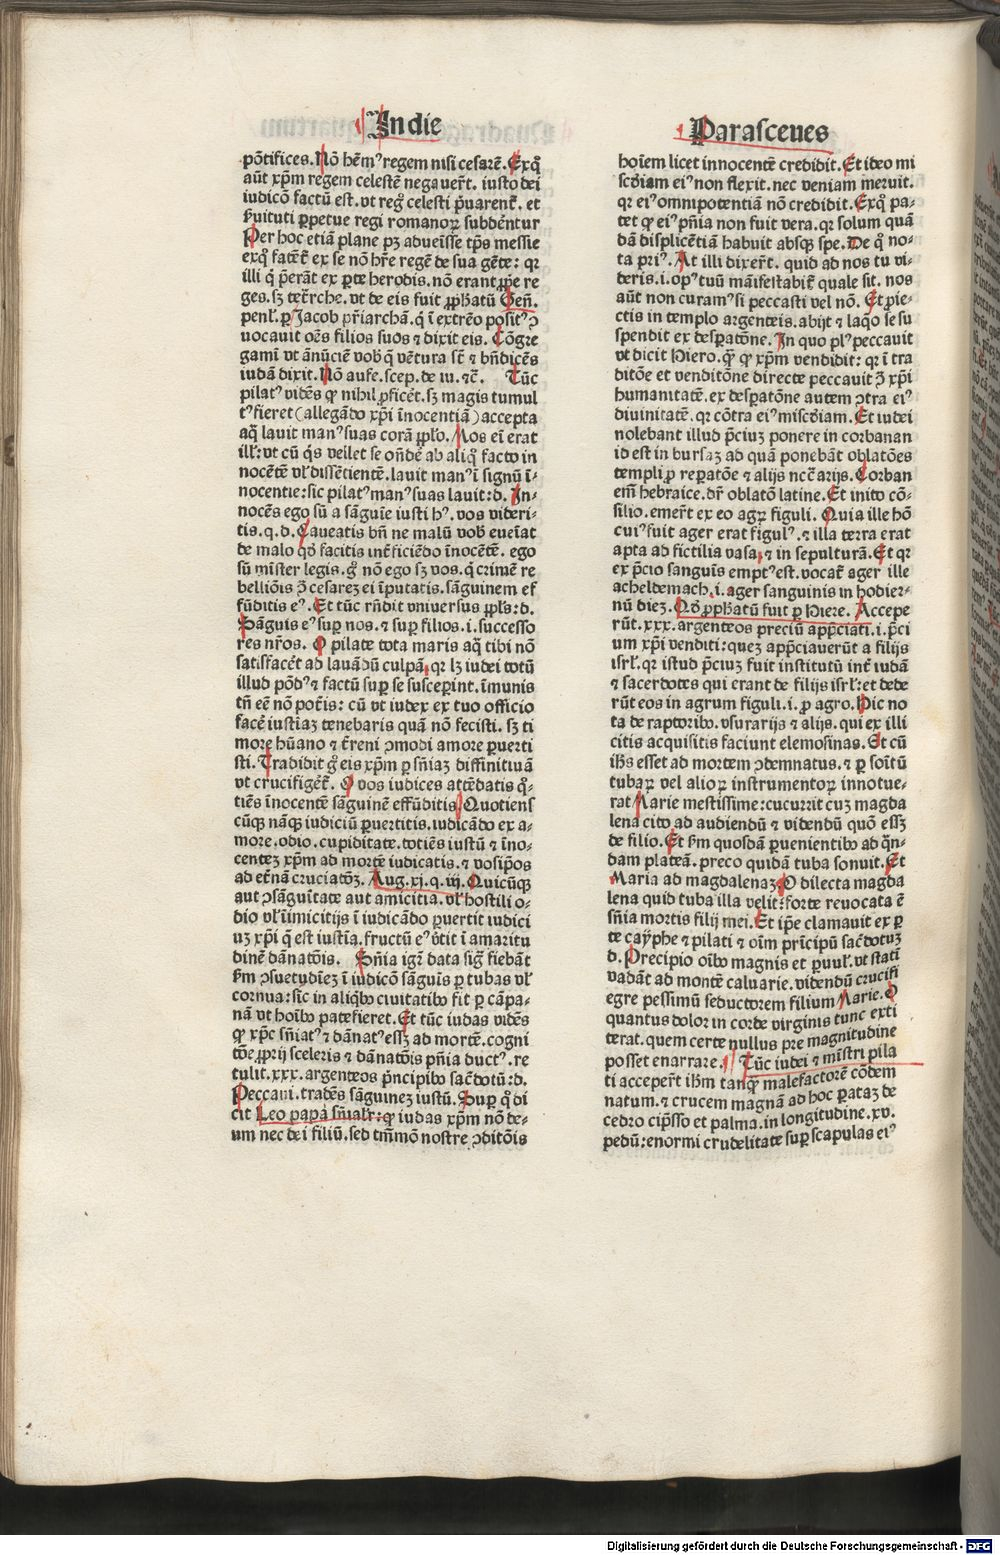 In die
Parasceues
põtifices. Nō hēmꝰ regem nisi cesarē. Exqͦ
aūt xp̄m regem celestē negauerūt. iusto dei
iudicō factū est. vt regͥ celesti p̄uarent̄. et
ẜuituti ꝑpetue regi romanoꝝ subdēntur
Per hoc etiā plane pꝫ adueīsse tp̄s messie
exqͦ fatēt̄ ex se nō hr̄e regē de sua gēte: qꝛ
illi qͥ p̄erāt ex ꝑte herodis. nō erant ꝓprie re
ges. sꝫ tetrarche. vt de eis fuit ꝓph̄atū Gen̄.
penl̄. ꝑ Jacob pr̄iarchā. qͥ ī extrēo positꝰ ꝯ
uocauit oēs filios suos ⁊ dixit eis. Cōgre
gami vt ānūciē vob̄ q̄ vētura sūt ⁊ bn̄dicēs
iudā dixit. Nō aufe. scep. de iu. ⁊c̄. Tūc
pilatꝰ vidēs ꝙ nihil ꝓficēt. sꝫ magis tumul
tꝰ fieret (allegādo xp̄i īnocentiā) accepta
aq̄ lauit manꝰ suas corā pplo. Mos eī erat
ill̄: vt cū qͥs vellet se on̄dē ab aliqͦ facto in
nocētē vl̄ dissētientē. lauit manꝰ ī signū ī-
nocentie: sic pilatꝰ manꝰ suas lauit: d. In-
nocēs ego sū a sāguīe iusti hꝰ. vos videri-
tis. q. d. Caueatis bn̄ ne malū vob̄ eueīat
de malo qd̄ facitis int̄ficiēdo īnocētē. ego
sū mīster legis. gͦ nō ego sꝫ vos. qͥ crimē re
belliōis ꝯ̄ cesareꝫ ei īputatis. sāguinem ef
fūditis eꝰ. Et tūc rn̄dit vniuersus ppl̄s: d.
Sāguis eꝰ suꝑ nos. ⁊ suꝑ filios. i. successo
res nr̄os. O pilate tota maris aq̄ tibi nō
satisfacēt ad lauādū culpā. qꝛ lꝫ iudei totū
illud pōdꝰ ⁊ factū suꝑ se susceperint. īmunis
tn̄ eē nō potis: cū vt iudex ex tuo officio
facē iustiaꝫ tenebaris quā nō fecisti. sꝫ ti
more hūano ⁊ t̄reni ꝯmodi amore ꝑuerti
sti. Tradidit gͦ eis xp̄m ꝑ sn̄iaꝫ diffinitiuā
vt crucifiget̄. O vos iudices attēdatis qͦ-
tiēs īnocentē sāguinē effūditis. Quotiens
cūqꝫ nāqꝫ iudiciū ꝑuertitis. iudicādo ex a-
more. odio. cupiditate. totiēs iustū ⁊ īno-
centeꝫ xp̄m ad mortē iudicatis. ⁊ vosip̄os
ad et̄nā cruciatōꝫ. Aug. xj. q. iij. Quicūqꝫ
aut ꝯsāguitate aut amicitia. vl̄ hostili o-
dio vl̄ īimicitijs ī iudicādo ꝑuertit iudici
uꝫ xp̄i qͥ est iustīa. fructū eꝰ vertit ī amaritu
dinē dānatōis. Sn̄ia igit̄ data sigͦ fiebāt
ẜm ꝯsuetudīeꝫ ī iudicō sāguīs ꝑ tubas vl̄
cornua: sic in aliqͥbꝰ ciuitatibꝰ fit ꝑ cāpa-
nā vt hoībꝰ patefieret. Et tūc iudas vidēs
ꝙ xp̄c sn̄iatꝰ ⁊ dānatꝰ essꝫ ad mortē. cogni
tōe ꝓprij sceleris ⁊ dānatōis pn̄ia ductꝰ. re
tulit. xxx. argenteos p̄ncipibꝰ sacdotū: d.
Peccaui. tradēs sāguineꝫ iustū. Suꝑ qͦ di
cit Leo papa sn̄ialr̄: ꝙ iudas xp̄m nō de-
um nec dei filiū. sed tm̄mō nostre ꝯditōis
hoīem licet innocentē credidit. Et ideo mi
scd̄iam eiꝰ non flexit. nec veniam meruit.
qꝛ eiꝰ omnipotentiā nō credidit. Exqͦ pa-
tet ꝙ eiꝰ pn̄ia non fuit vera. qꝛ solum quā
dā displicētiā habuit absqꝫ spe. De qͦ no-
ta priꝰ. At illi dixer̄t. quid ad nos tu vi-
deris. i. opꝰ tuū māifestabit̄ quale sit. nos
aūt non curamꝰ si peccasti vel nō. Et ꝓie-
ctis in templo argenteis. abijt ⁊ laqͦ se su
spendit ex despatōne. In quo plꝰ peccauit
vt dicit Hiero. qͣ ꝙ xp̄m vendidit: qꝛ ī tra
ditōe et venditōne directe peccauit ꝯ̄ xp̄i
humanitatē. ex despatōne autem ꝯtra eiꝰ
diuinitatē. qꝛ cōtra eiꝰ miscd̄iam. Et iudei
nolebant illud p̄ciuꝫ ponere in corbanan
id est in bursaꝫ ad quā ponebāt oblatōes
templi ꝓ repatōe ⁊ alijs nccārijs. Corban
em̄ hebraice. dr̄ oblatō latine. Et inito cō-
silio. emer̄t ex eo agꝝ figuli. Quia ille hō
cuiꝰ fuit ager erat figulꝰ. ⁊ illa terra erat
apta ad fictilia vasa. ⁊ in sepulturā. Et qꝛ
ex p̄cio sanguīs emptꝰ est. vocat̄ ager ille
acheldemach. i. ager sanguinis in hodier-
nū dieꝫ. Qd̄ ꝓph̄atū fuit ꝑ Hiere. Accepe
rūt. xxx. argenteos preciū app̄ciati. i. p̄ci
um xp̄i venditi: queꝫ app̄ciauerūt a filijs
isrl̄. qꝛ istud p̄ciuꝫ fuit institutū int̄ iudā
⁊ sacerdotes qui erant de filijs isrl̄: et dede
rūt eos in agrum figuli. i. ꝓ agro. Hic no
ta de raptoribꝰ. vsurarijs ⁊ alijs. qui ex illi
citis acquisitis faciunt elemosinas. Et cū
ih̄s esset ad mortem ꝯdemnatus. ⁊ ꝑ soītū
tubaꝝ vel alioꝝ instrumentoꝝ innotue-
rat Marie mestissime: cucurrit cuꝫ magda
lena cito ad audiendū ⁊ videndū quō essꝫ
de filio. Et ẜm quosdā ꝑuenientibꝰ ad qͣn-
dam plateā. preco quidā tuba sonuit. Et
Maria ad magdalenaꝫ. O dilecta magda
lena quid tuba illa velit: forte reuocata ē
sn̄ia mortis filij mei. Et ip̄e clamauit ex ꝑ
te cayphe ⁊ pilati ⁊ oīm prīcipū sacdotuꝫ
d. Precipio oībꝰ magnis et ꝑuul̄. vt statī
vadāt ad montē caluarie. videndū crucifi
egre pessimū seductorem filium Marie. O
quantus dolor in corde virginis tunc exti
terat. quem certe nullus pre magnitudine
posset enarrare. Tūc iudei ⁊ mīstri pila
ti acceper̄t ih̄m tanqͣ malefactorē cōdem
natum. ⁊ crucem magnā ad hoc ꝑataꝫ de
cedro cip̄sso et palma. in longitudine. xv.
pedū: enormi crudelitate suꝑ scapulas eiꝰ
Digitalisierung gefördert durch die Deutsche Forschungsgemeinschaft - DFG